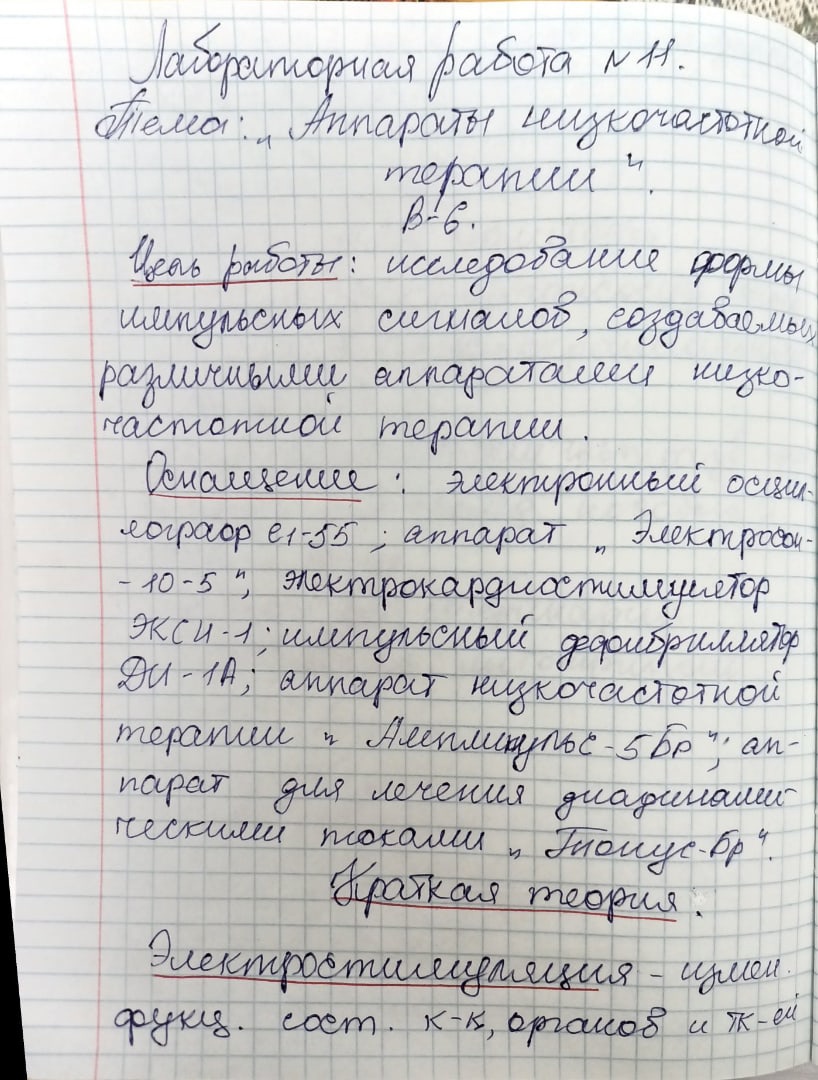 Лабораторная работа N 11.
Тема: „Аппараты низкочастотной
терапии".
В-6.
Цель работы: исследование формы
импульсных сигналов, создаваемых
различными аппаратами низко-
частотной терапии.
Оснащение: электронный осцил-
лограф С1-55; аппарат „Электросон-
-10-5", электрокардиостимулятор
ЭКСН-1; импульсный дефибриллятор
ДИ-1А; аппарат низкочастотной
терапии „Амплипульс-5Бр"; ап-
парат для лечения диадинами-
ческими токами „Тонус-Бр".
Краткая теория.
Электростимуляция - измен.
функц. сост. к-к, органов и тк-ей